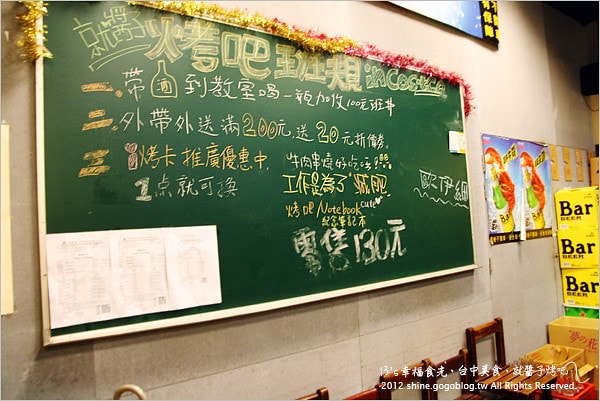 就醬子 烤吧 班規 in Costco
一. 帶酒到教室喝一瓶加收100元班費
二. 外帶外送滿200元送20元折價券.
三. 烤卡推廣優惠中.
1點就可換
牛肉串燒好吃唷!!!
工作是為了"減肥"
烤吧Notebook cute
紀念筆記本
零售130元
歐伊細
Bar
BEER
Bar
BEER
Bar
BEER
13's幸福食光、台中美食、就醬子烤吧
2012 shine.gogoblog.tw All Rights Reserved.